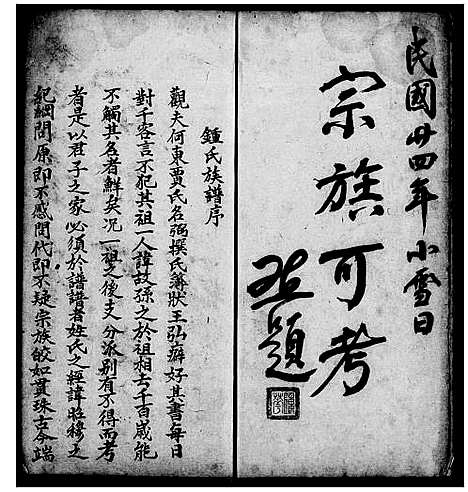 民國廿四年小雪日
宗族可考
題
鍾氏族譜序
觀夫何東賈氏名弼撰氏簿狀王弘癖好其書每日
對千客言不犯其祖一人諱故孫之於祖相去千百歲能
不觸其名者鮮矣况一祖之後支分派別有不得而考
者是以君子之家必須於譜譜者姓氏之經諱昭穆之
紀綱問原即不惑問代即不疑宗族皎如貫珠古今端